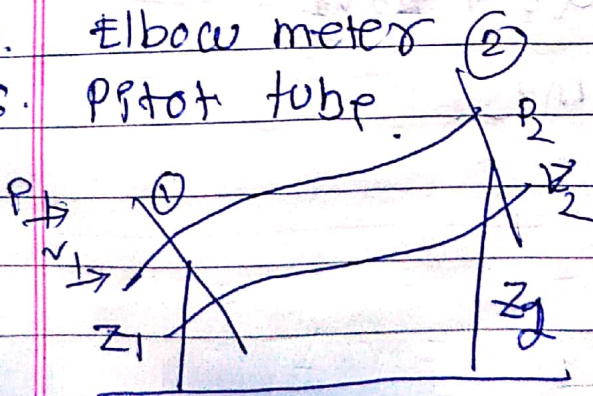 Elbow meter ②
Pitot tube.
P₂
①
P₁
V₂
V₁
Z₁
Z₂